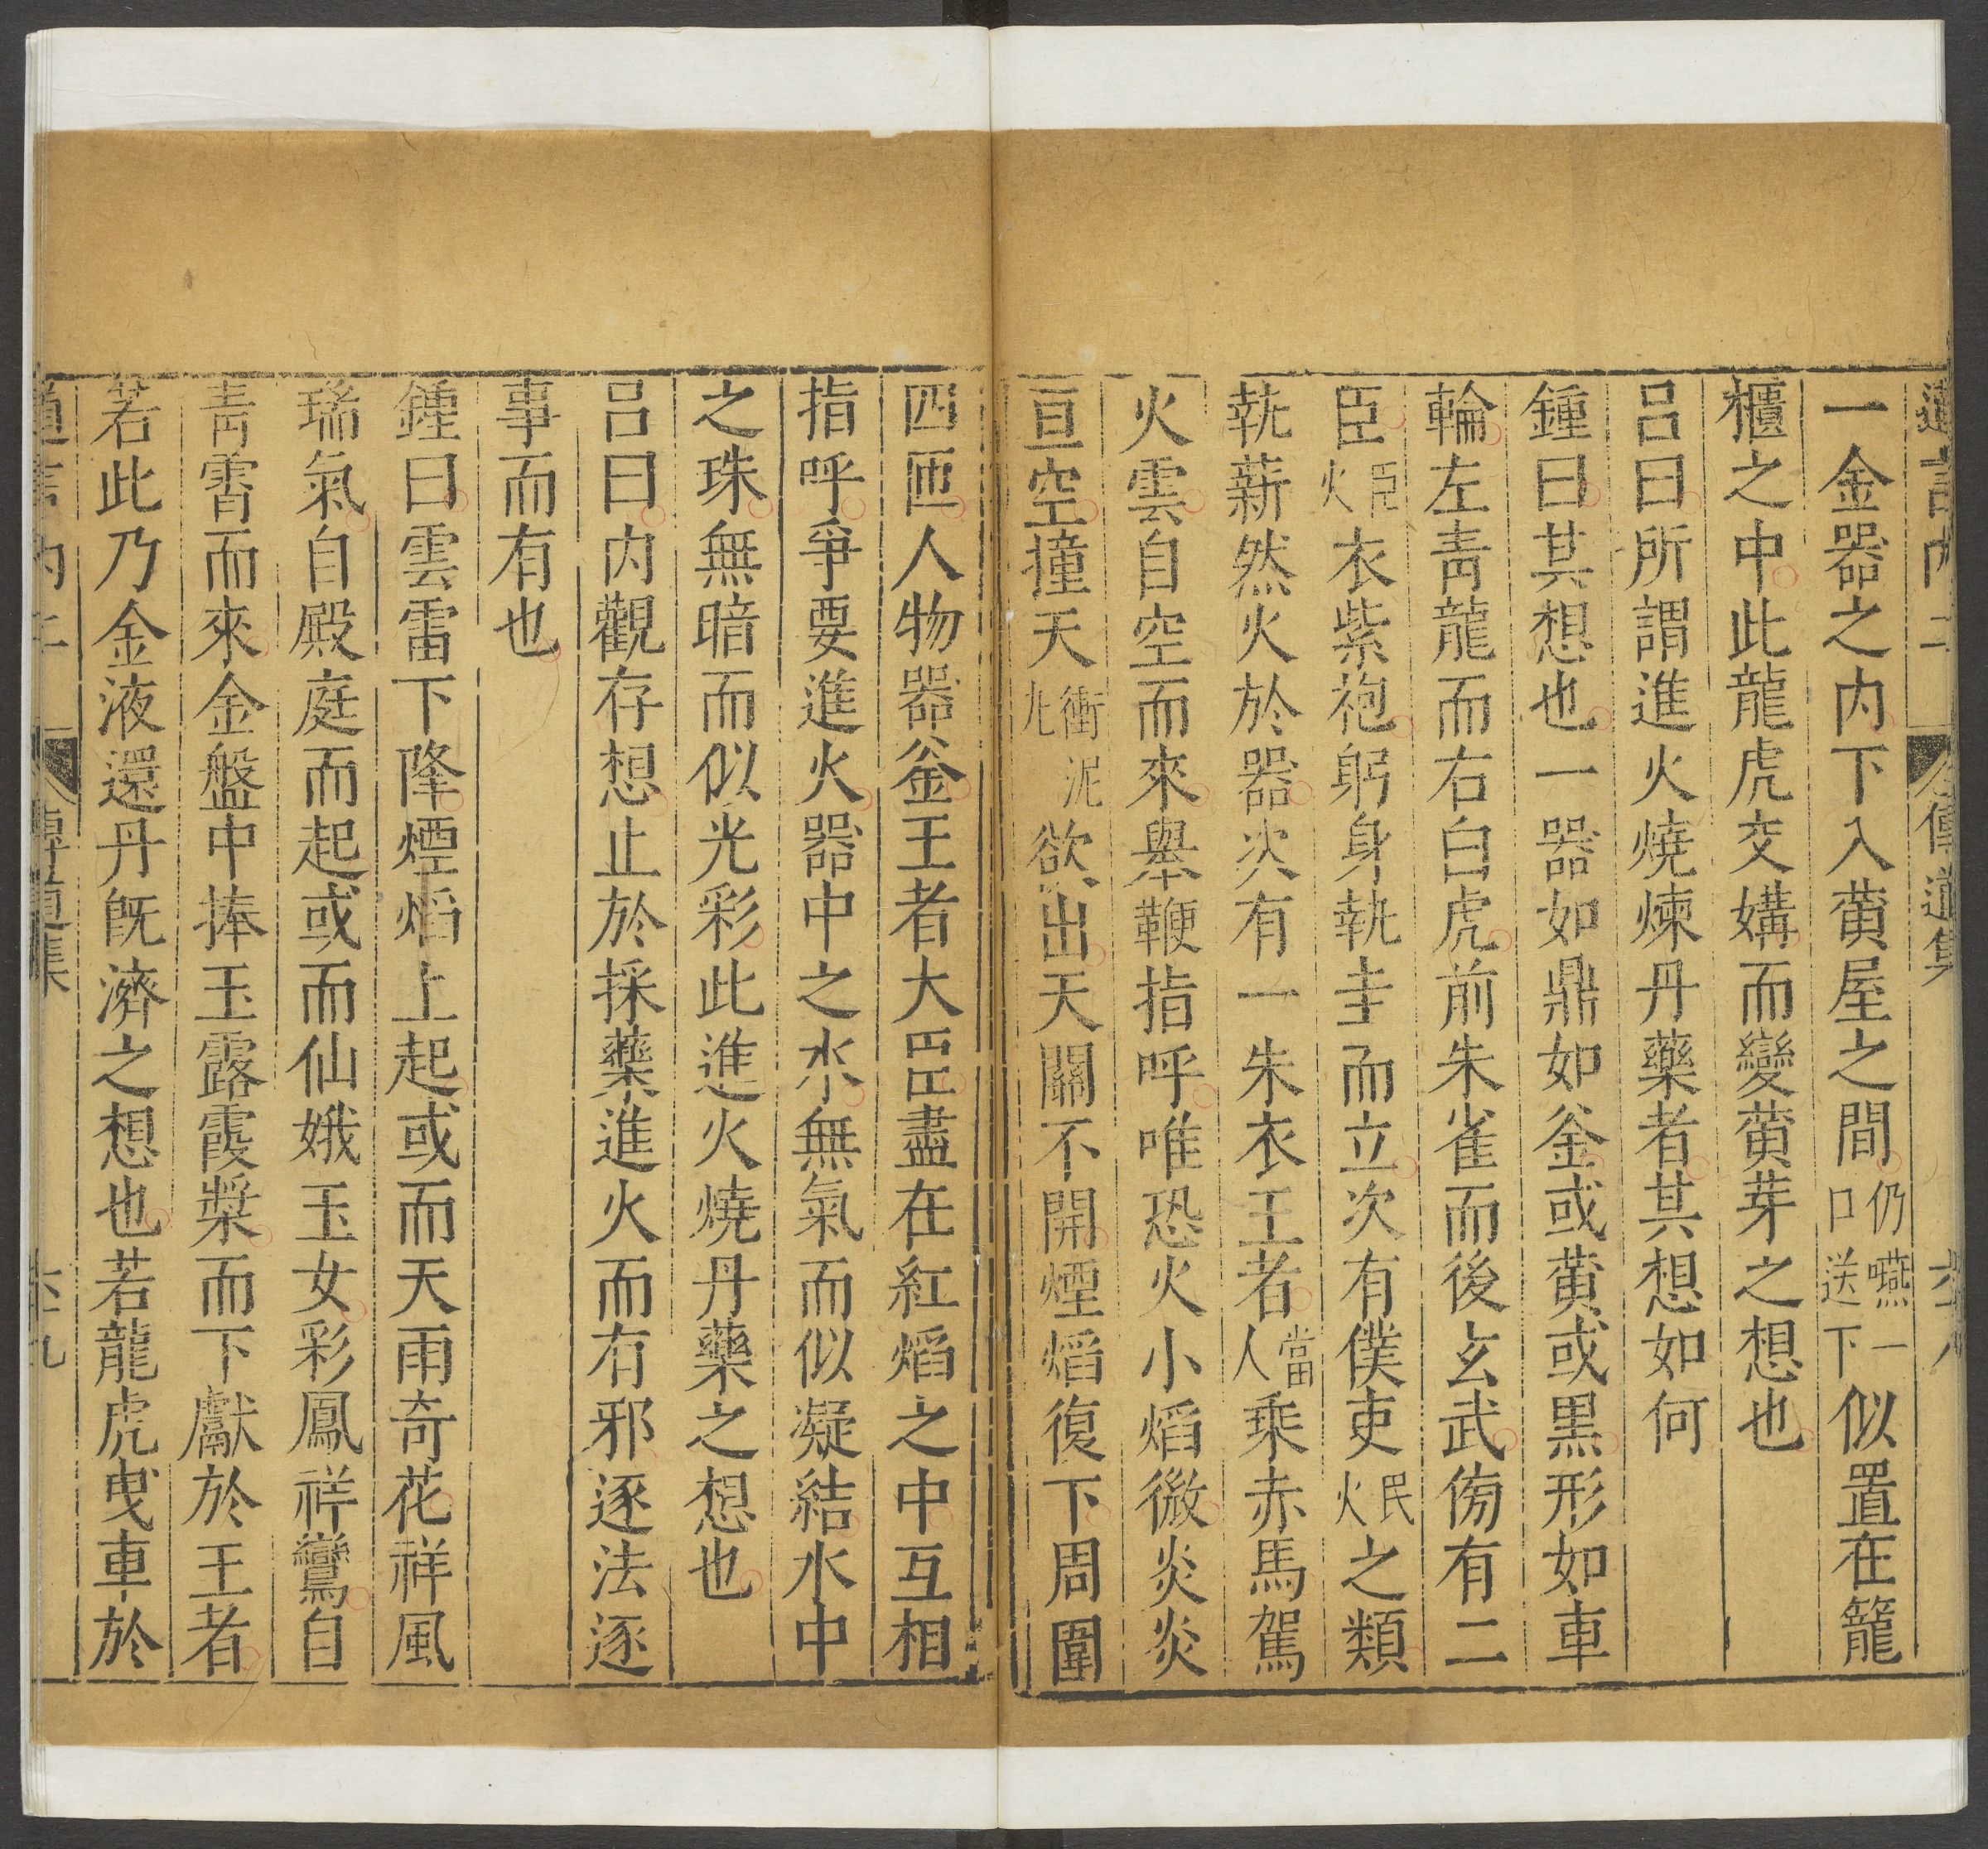 道言内二 傳道集 六十八
一金器之内下入黄屋之間仍嚥一口送下似置在籠
櫃之中此龍虎交媾而變黄芽之想也
吕曰所謂進火燒煉丹藥者其想如何
鍾曰其想也一器如鼎如釜或黄或黒形如車
輪左青龍而右白虎前朱雀而後玄武傍有二
臣臣火衣紫袍躬身執圭而立次有僕吏民火之類
執薪然火於器次有一朱衣王者當人乗赤馬駕
火雲自空而來舉鞭指呼唯恐火小焰微炎炎
亘空撞天衝泥九欲出天關不開煙焰復下周圍
四匝人物器釜王者大臣盡在紅焰之中互相
指呼爭要進火器中之水無氣而似凝結水中
之珠無暗而似光彩此進火燒丹藥之想也
吕曰内觀存想止於採藥進火而有邪逐法逐
事而有也
鍾曰雲雷下降煙焰上起或而天雨奇花祥風
瑞氣自殿庭而起或而仙娥玉女彩鳳祥鸞自
青霄而來金盤中捧玉露霞漿而下獻於王者
若此乃金液還丹旣濟之想也若龍虎曳車於
道言内二 傳道集 六十九